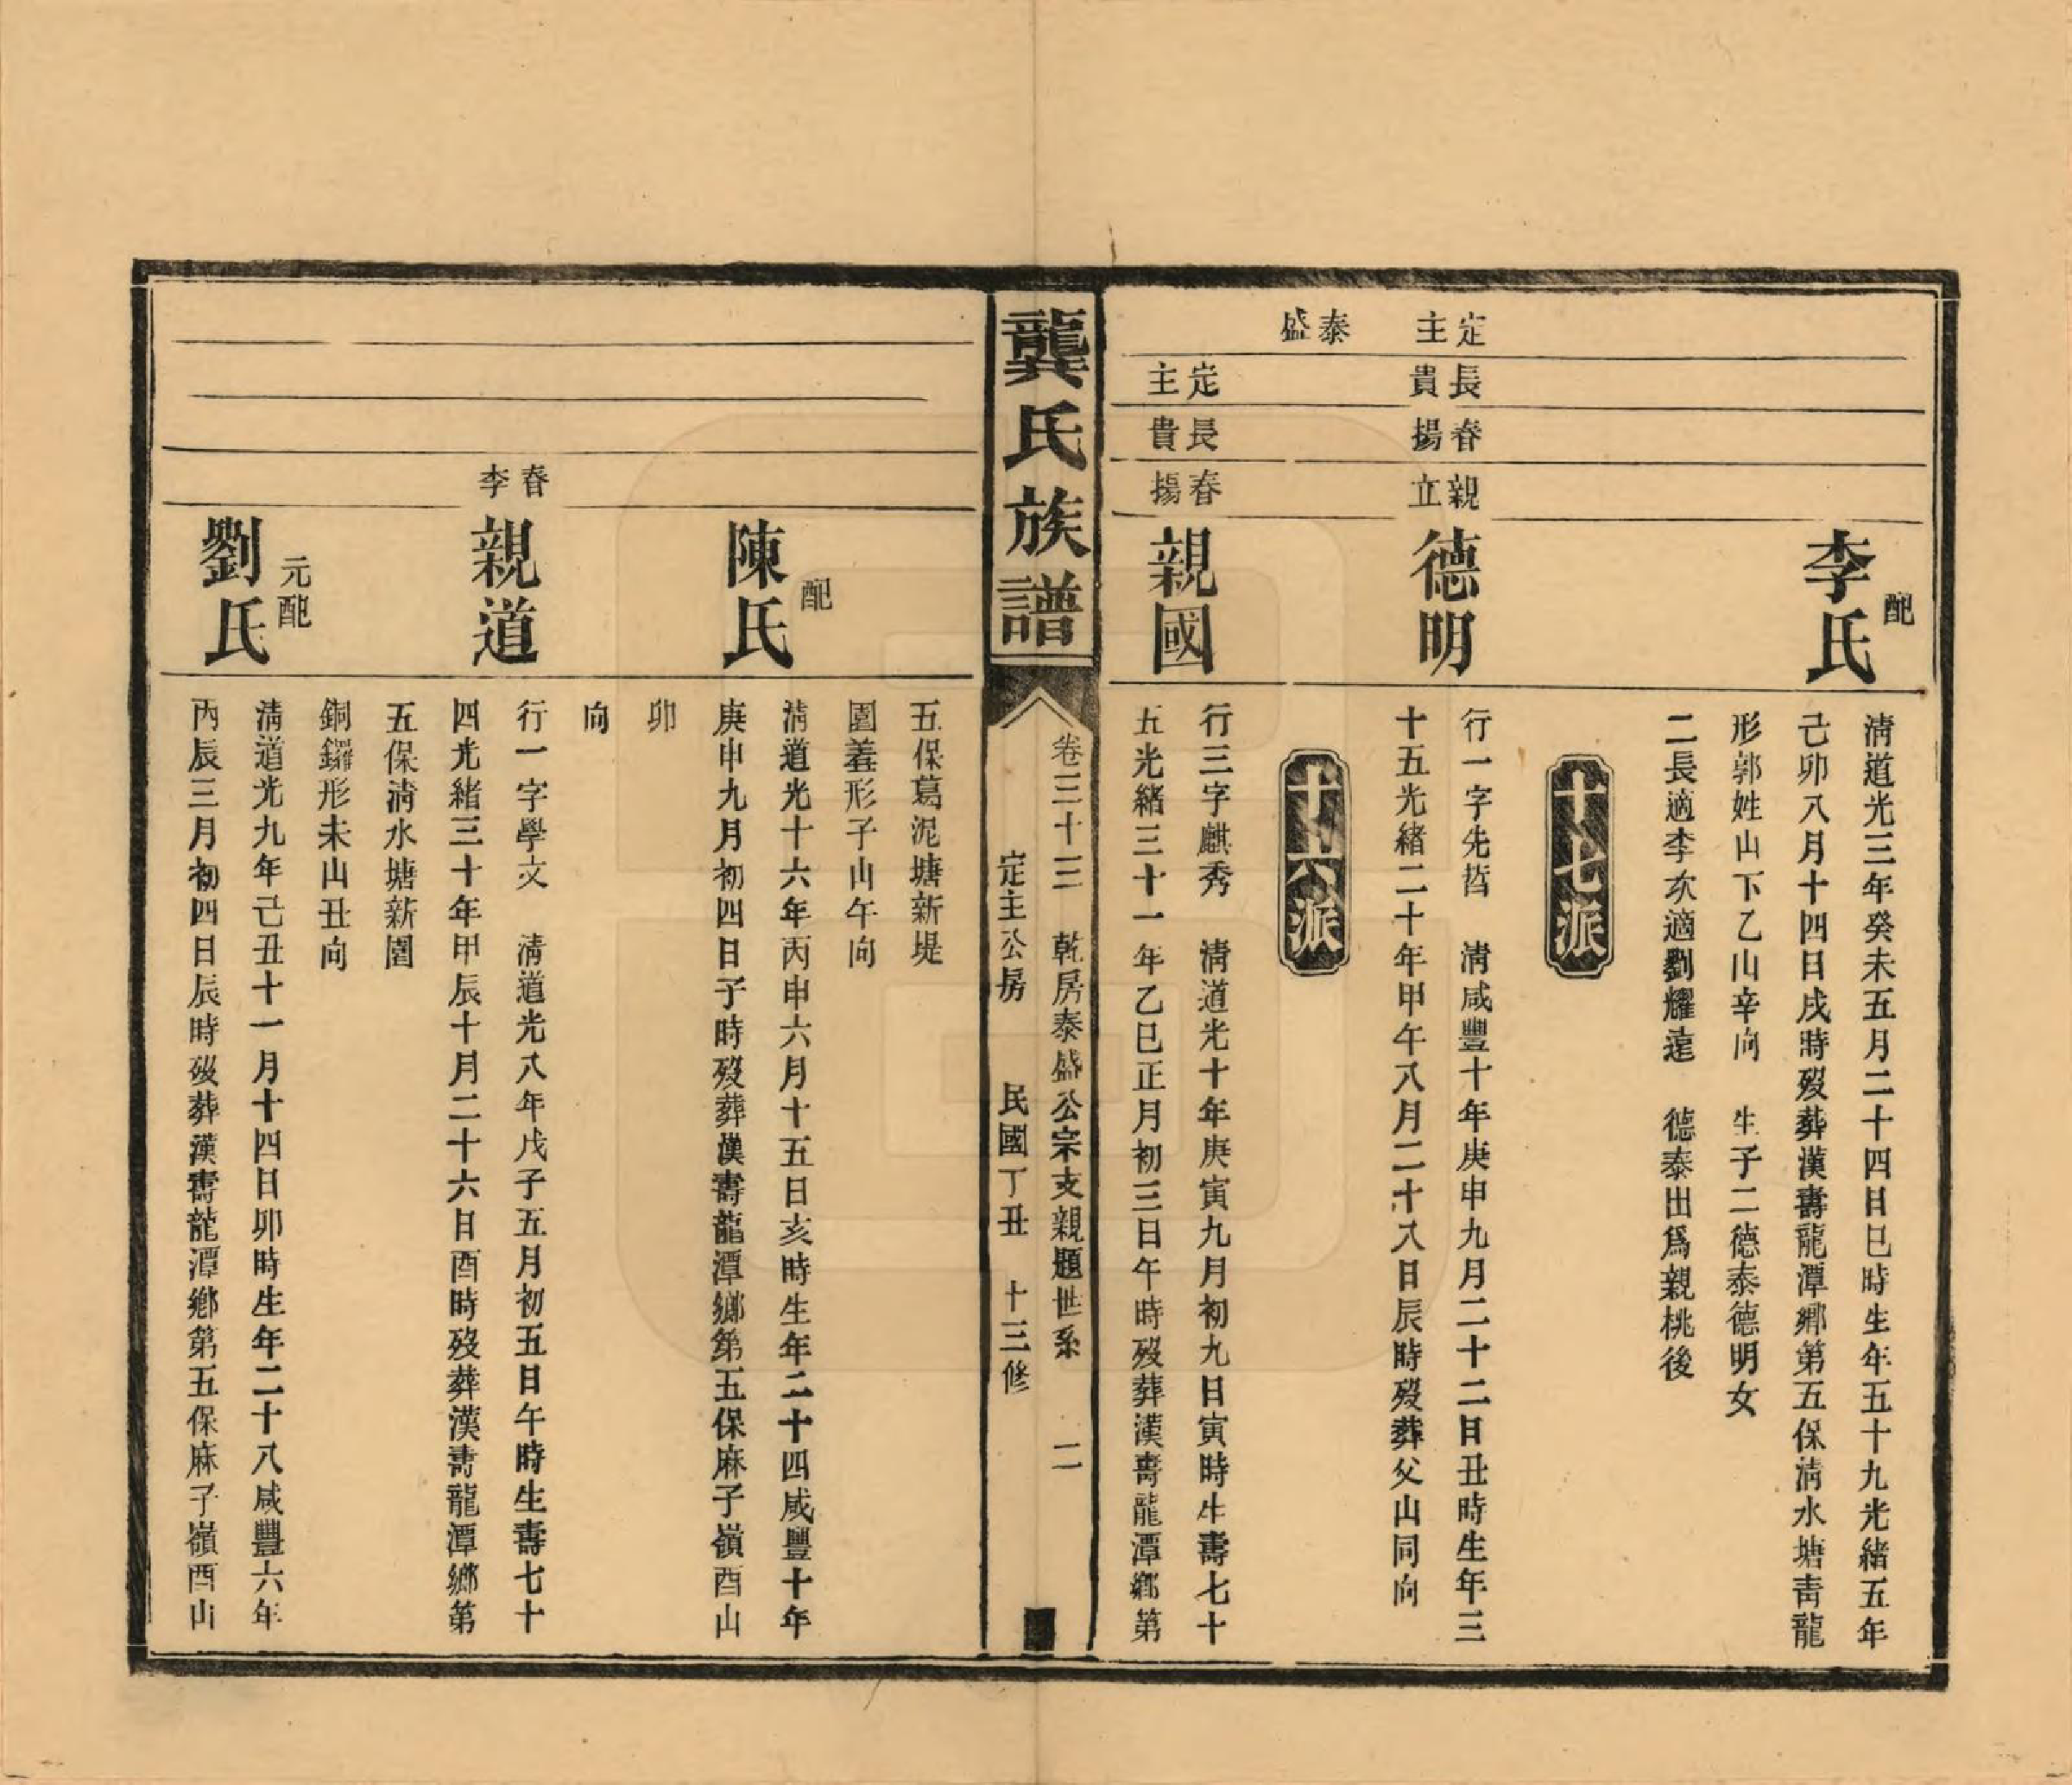 配
李氏
淸道光三年癸未五月二十四日巳時生年五十九光緒五年
己卯八月十四日戌時歿葬漢壽龍潭鄉第五保淸水塘靑龍
形郭姓山下乙山辛向 生子二德泰德明女
二長適李次適劉耀遠 德泰出爲親桃後
十七派
定主
長貴
春揚
親立
德明
行一字先哲 淸咸豐十年庚申九月二十二日丑時生年三
十五光緒二十年甲午八月二十八日辰時歿葬父山同向
十六派
泰盛
定主
長貴
春揚
親國
行三字麒秀 淸道光十年庚寅九月初九日寅時生壽七十
五光緒三十一年乙巳正月初三日午時歿葬漢壽龍潭鄉第
龔氏族譜
卷三十三 乾房泰盛公宗支親題世系 二
定主公房 民國丁丑 十三修
五保葛泥塘新堤
園羲形子山午向
配
陳氏
淸道光十六年丙申六月十五日亥時生年二十四咸豐十年
庚申九月初四日子時歿葬漢壽龍潭鄉第五保麻子嶺酉山
卯
向
春李
親道
行一字學文 淸道光八年戊子五月初五日午時生壽七十
四光緒三十年甲辰十月二十六日酉時歿葬漢壽龍潭鄉第
五保淸水塘新園
銅鑼形未山丑向
元配
劉氏
淸道光九年己丑十一月十四日卯時生年二十八咸豐六年
丙辰三月初四日辰時歿葬漢壽龍潭鄉第五保麻子嶺酉山